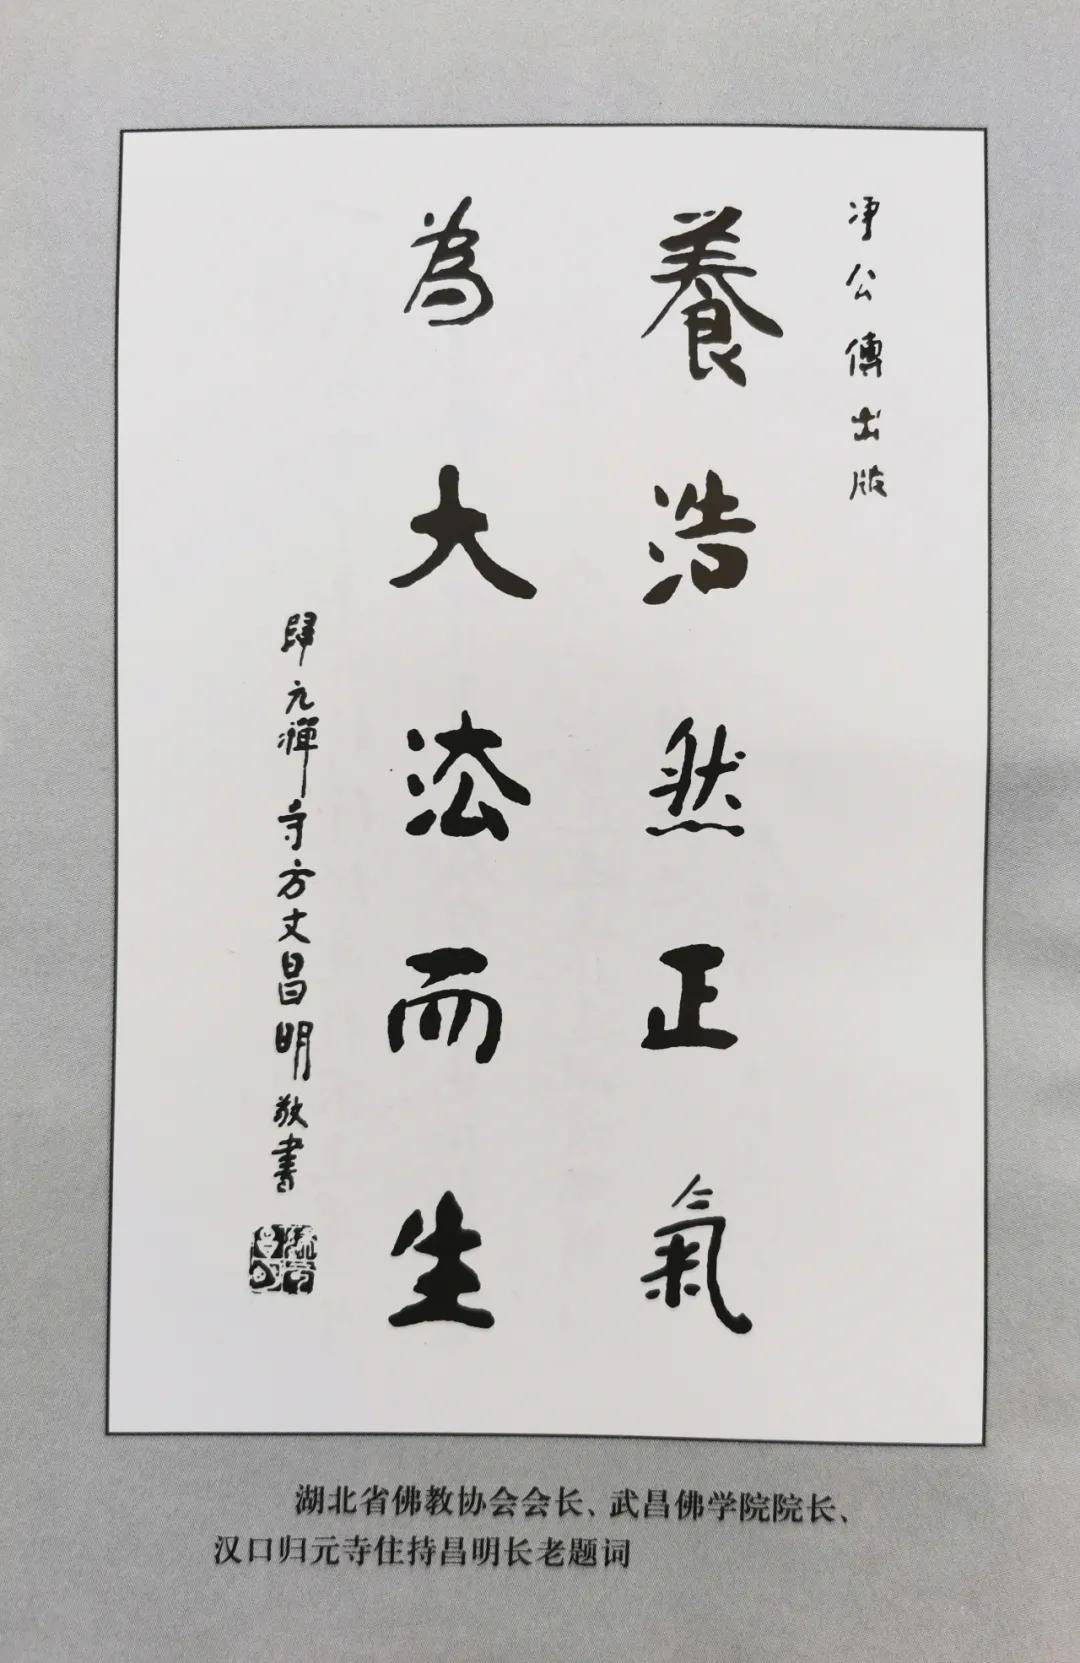 净公傳出版
養浩然正氣
為大法而生
歸元禪寺方丈昌明敬書
湖北省佛教协会会长、武昌佛学院院长、
汉口归元寺住持昌明长老题词